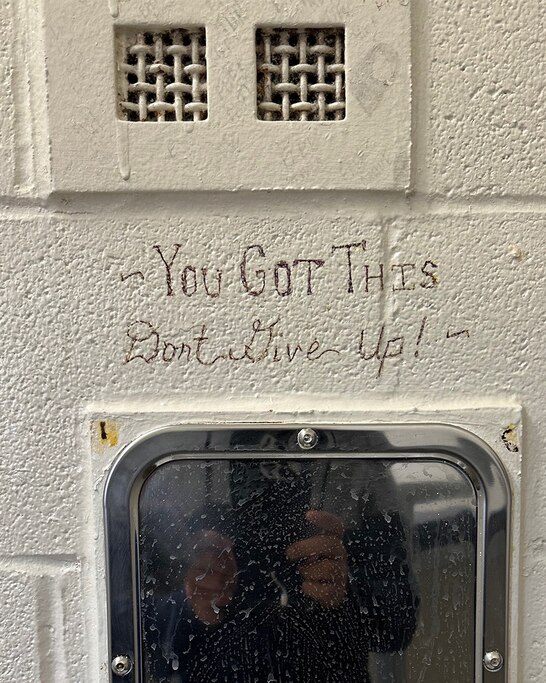 ~ You Got This
Dont Give Up! ~